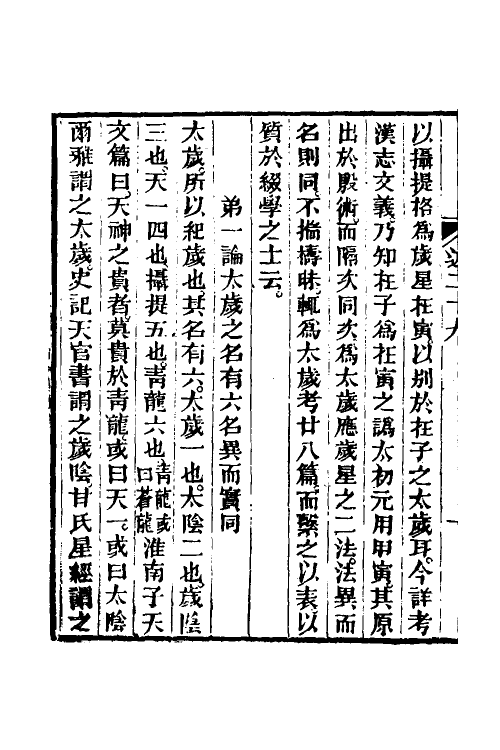 以攝提格爲歲星在寅。以別於在子之太歲耳。今詳考
漢志文義。乃知在子爲在寅之譌。太初元用甲寅。其原
出於殷術。而隔次同次。爲太歲應歲星之二法。法異而
名則同。不揣檮昧。輒爲太歲考廿八篇。而繫之以表。以
質於綴學之士云。
第一論太歲之名有六名異而實同
太歲。所以紀歲也。其名有六。太歲一也。太陰二也。歲陰
三也。天一四也。攝提五也。靑龍六也。靑龍或曰蒼龍淮南子天
文篇曰。天神之貴者。莫貴於靑龍。或曰天一。或曰太陰
爾雅謂之太歲。史記天官書謂之歲陰。甘氏星經謂之